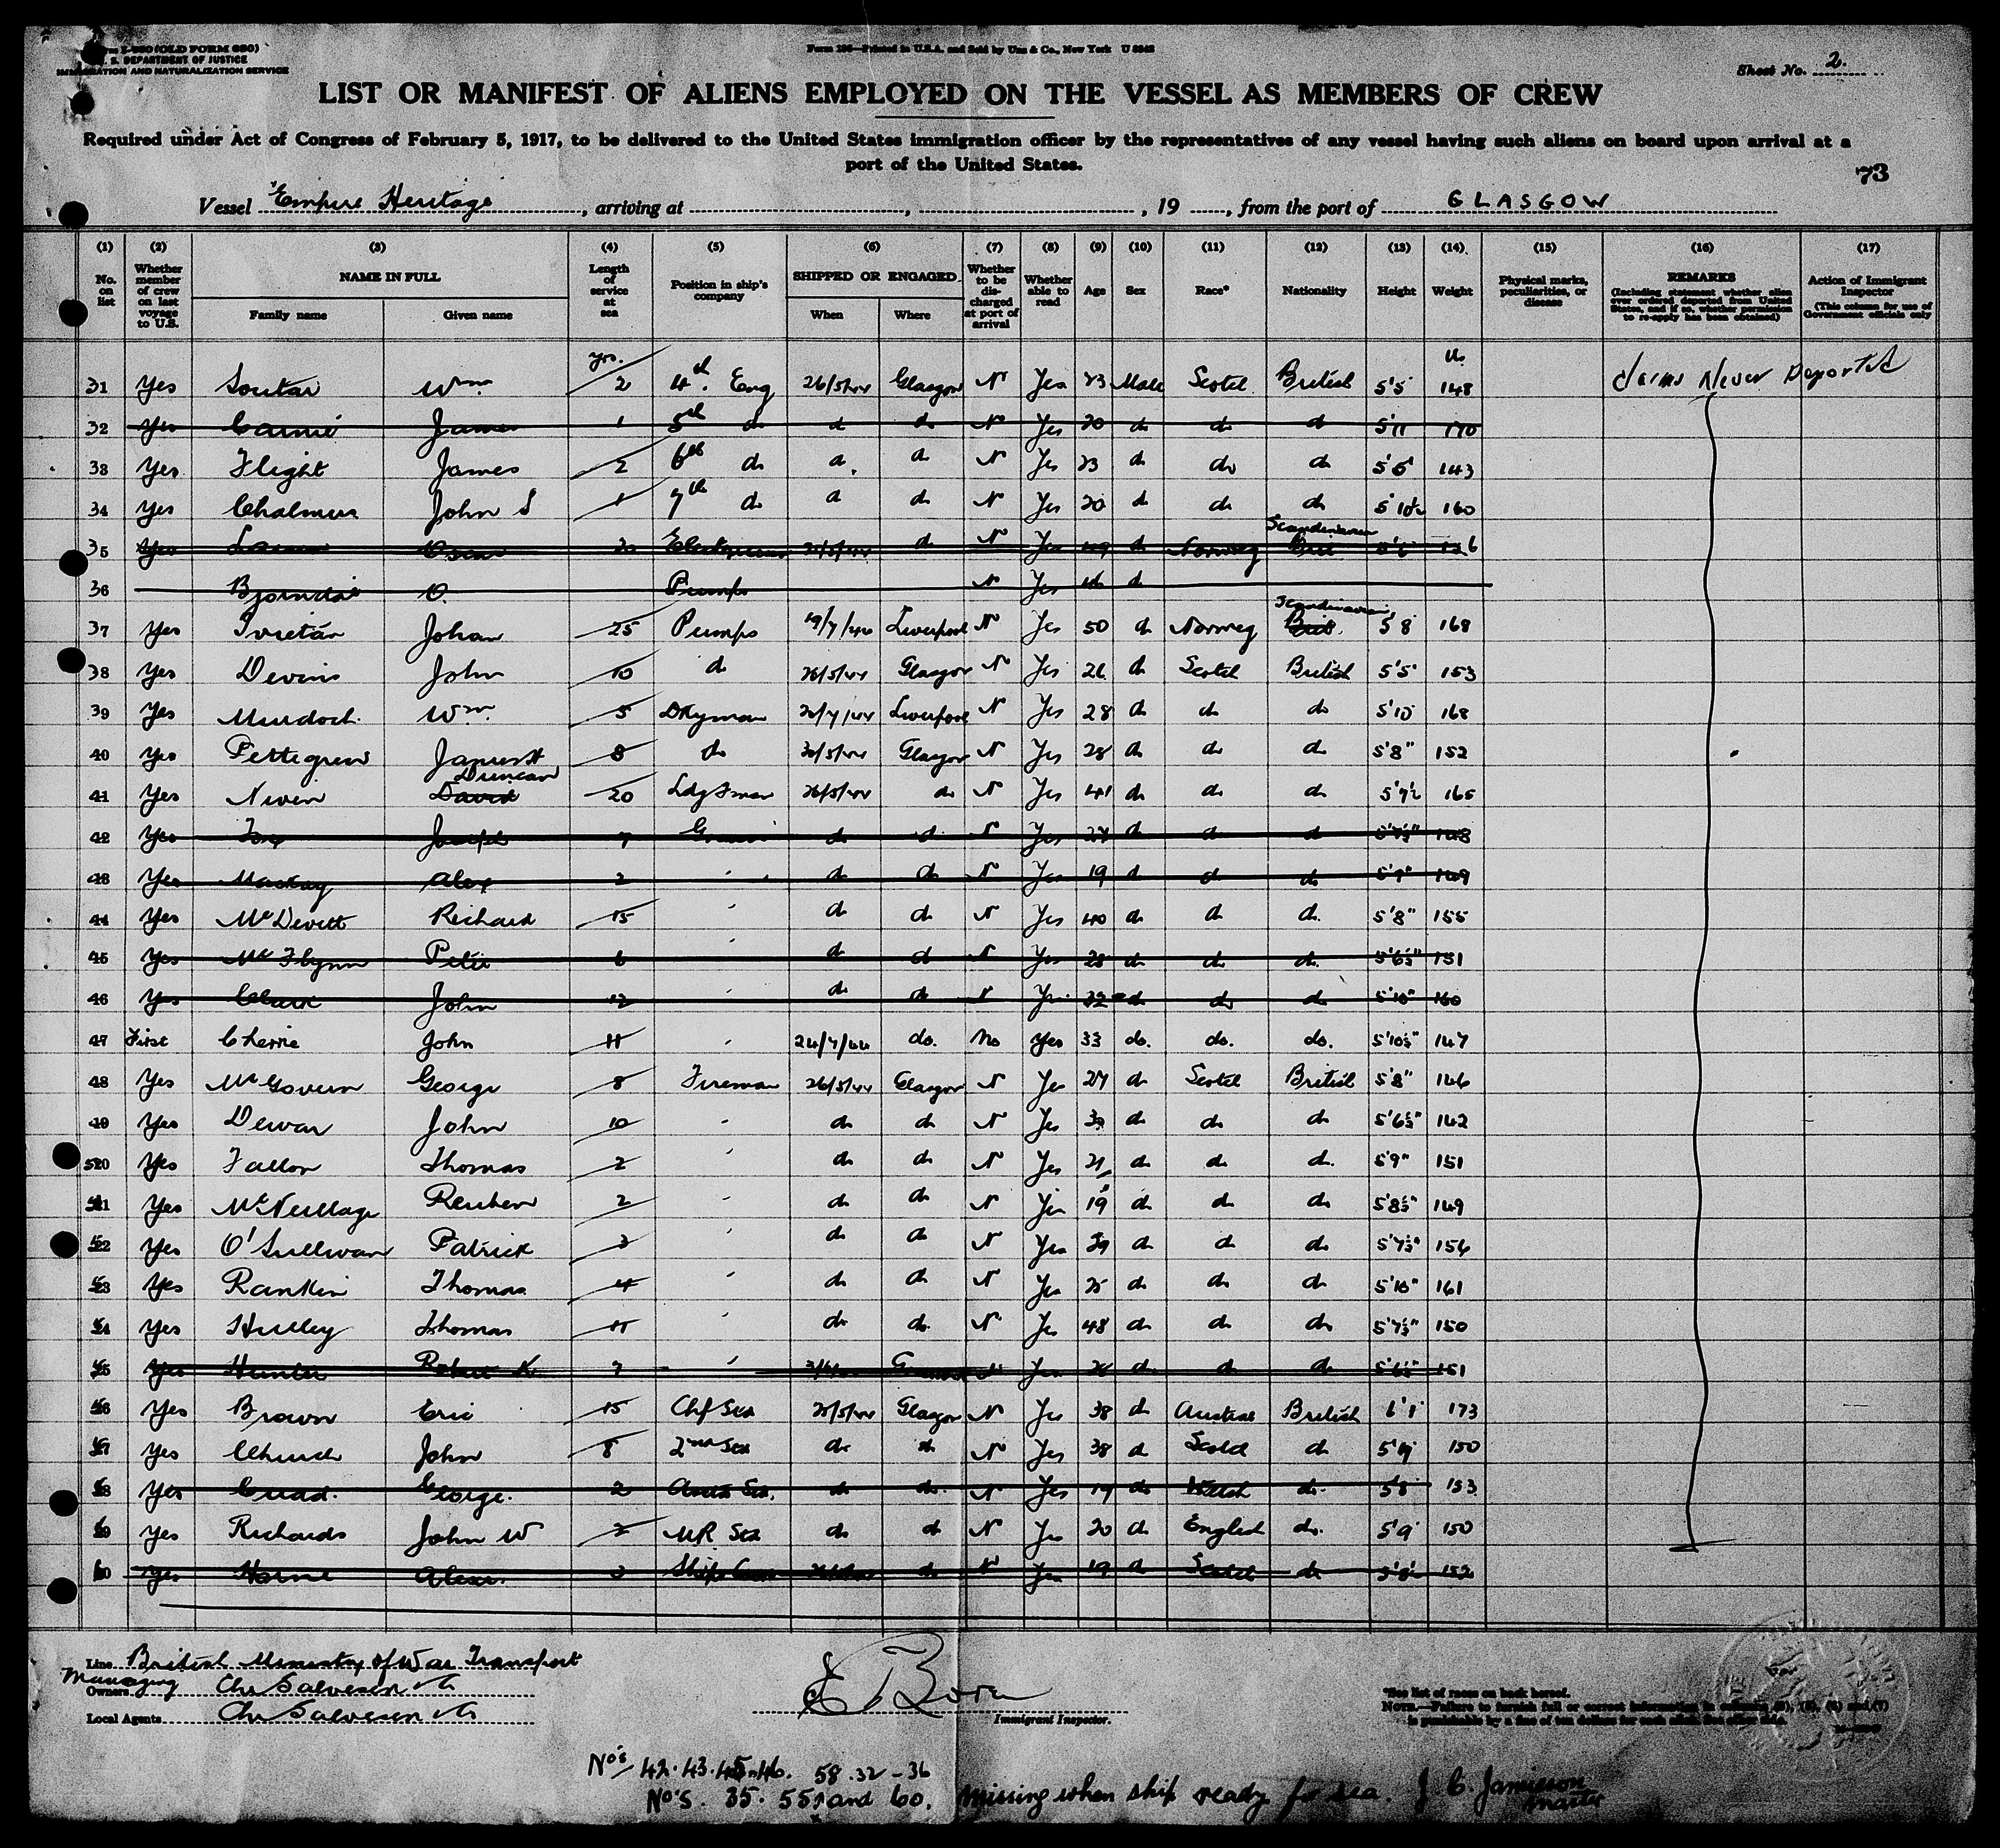 Form I-480 (OLD FORM 680)
U. S. DEPARTMENT OF JUSTICE
IMMIGRATION AND NATURALIZATION SERVICE
Sheet No. 2.
LIST OR MANIFEST OF ALIENS EMPLOYED ON THE VESSEL AS MEMBERS OF CREW
Required under Act of Congress of February 5, 1917, to be delivered to the United States immigration officer by the representatives of any vessel having such aliens on board upon arrival at a
port of the United States.
73
Vessel "Empire Heritage , arriving at , , 19 , from the port of GLASGOW
(1) (2) (3) (4) (5) (6) (7) (8) (9) (10) (11) (12) (13) (14) (15) (16) (17)
No. on list Whether member of crew on last voyage to U.S. NAME IN FULL Family name Given name Length of service at sea Position in ship's company SHIPPED OR ENGAGED When Where Whether to be discharged at port of arrival Whether able to read Age Sex Race* Nationality Height Weight Physical marks, peculiarities, or disease REMARKS (Including statement whether alien ever ordered deported from United States, and if so, whether permission to re-apply has been obtained) Action of Immigrant Inspector (This column for use of Government officials only
yrs.
31 Yes Soutar Wm 2 4th Eng 26/5/44 Glasgow N Yes 23 Male Scotch British 5'5 148 Never Deported
32 Yes James 1 5th do do do N Yes 20 do do do 5'11 170
33 Yes Flight James 2 6th do do do N Yes 23 do do do 5'6 143
34 Yes Chalmers John S 1 7th do do do N Yes 20 do do do 5'10½ 160
35 Yes Oscar 20 Electrician do N Yes 49 d Norweg Scandinavian
36 O. Pumps N Yes d
37 Yes Johan 25 Pumps 19/7/44 Liverpool N Yes 50 d Norweg Scandinavian Brit. 5'8 168
38 Yes Devine John 10 d 26/5/44 Glasgow N Yes 26 d Scotch British 5'5 153
39 Yes Murdoch Wm 5 Dkyman 20/7/44 Liverpool N Yes 28 d d do 5'10 168
40 Yes Pettegrew James H 8 do 26/5/44 Glasgow N Yes 28 d d d 5'8" 152
41 Yes Niven Duncan David 20 Ldg Fman 26/5/44 do N Yes 41 d d d 5'7½ 165
42 Yes Joseph 7 d d N Yes 27 d d d 5'7½" 148
43 Yes Mackay Alex 2 d d N Yes 19 d d d 5'7" 149
44 Yes McDevitt Richard 15 d d N Yes 40 d d d. 5'8" 155
45 Yes McFlynn Peter 6 d d N Yes 28 d d d. 5'6½" 151
46 Yes Clark John 12 d d N Yes 32 d d d 5'10" 160
47 First Cherrie John 11 24/7/44 do. No Yes 33 do. do. do. 5'10½" 147
48 Yes McGovern George 8 Fireman 26/5/44 Glasgow N Yes 27 d Scotch British 5'8" 146
49 Yes Dewar John 10 d d N Yes 39 d d d 5'6½" 142
50 Yes Fallon Thomas 2 d d N Yes 21 d d d. 5'9" 151
51 Yes McNeillage Reuben 2 d d N Yes 19 d d d 5'8½" 149
52 Yes O'Sullivan Patrick 3 d d N Yes 39 d d d 5'7½" 156
53 Yes Rankin Thomas 4 d d N Yes 25 d d d 5'10" 161
54 Yes Hulley Thomas 11 d d N Yes 48 d d d 5'7½" 150
55 Yes Hunter Robert K 7 Yes d d d 5'6½" 151
56 Yes Brown Eric 15 Chf Std 25/5/44 Glasgow N Yes 38 d British 6'1" 173
57 Yes Church John 8 2nd Std d d N Yes 38 d Scotch d 150
58 Yes George. 2 d d N Yes 19 d Welsh d. 5'8 153
59 Yes Richards John W 2 d d N Yes 20 d English d. 5'9 150
60 Yes Horne Alexr. 3 d N Yes 19 d Scotch d 152
Line British Ministry of War Transport
Managing Owners Chr Salvesen & Co
Local Agents Chr Salvesen & Co
Immigrant Inspector.
*See list of races on back hereof.
NOTE.—Failure to furnish full or correct information in columns (2), (5), (6) and (7)
is punishable by a fine of ten dollars for each alien
No's 42. 43. 45. 46. 58. 32 - 36
No's. 35. 55 and 60. Missing when ship ready for sea. J C. Jamieson
Master